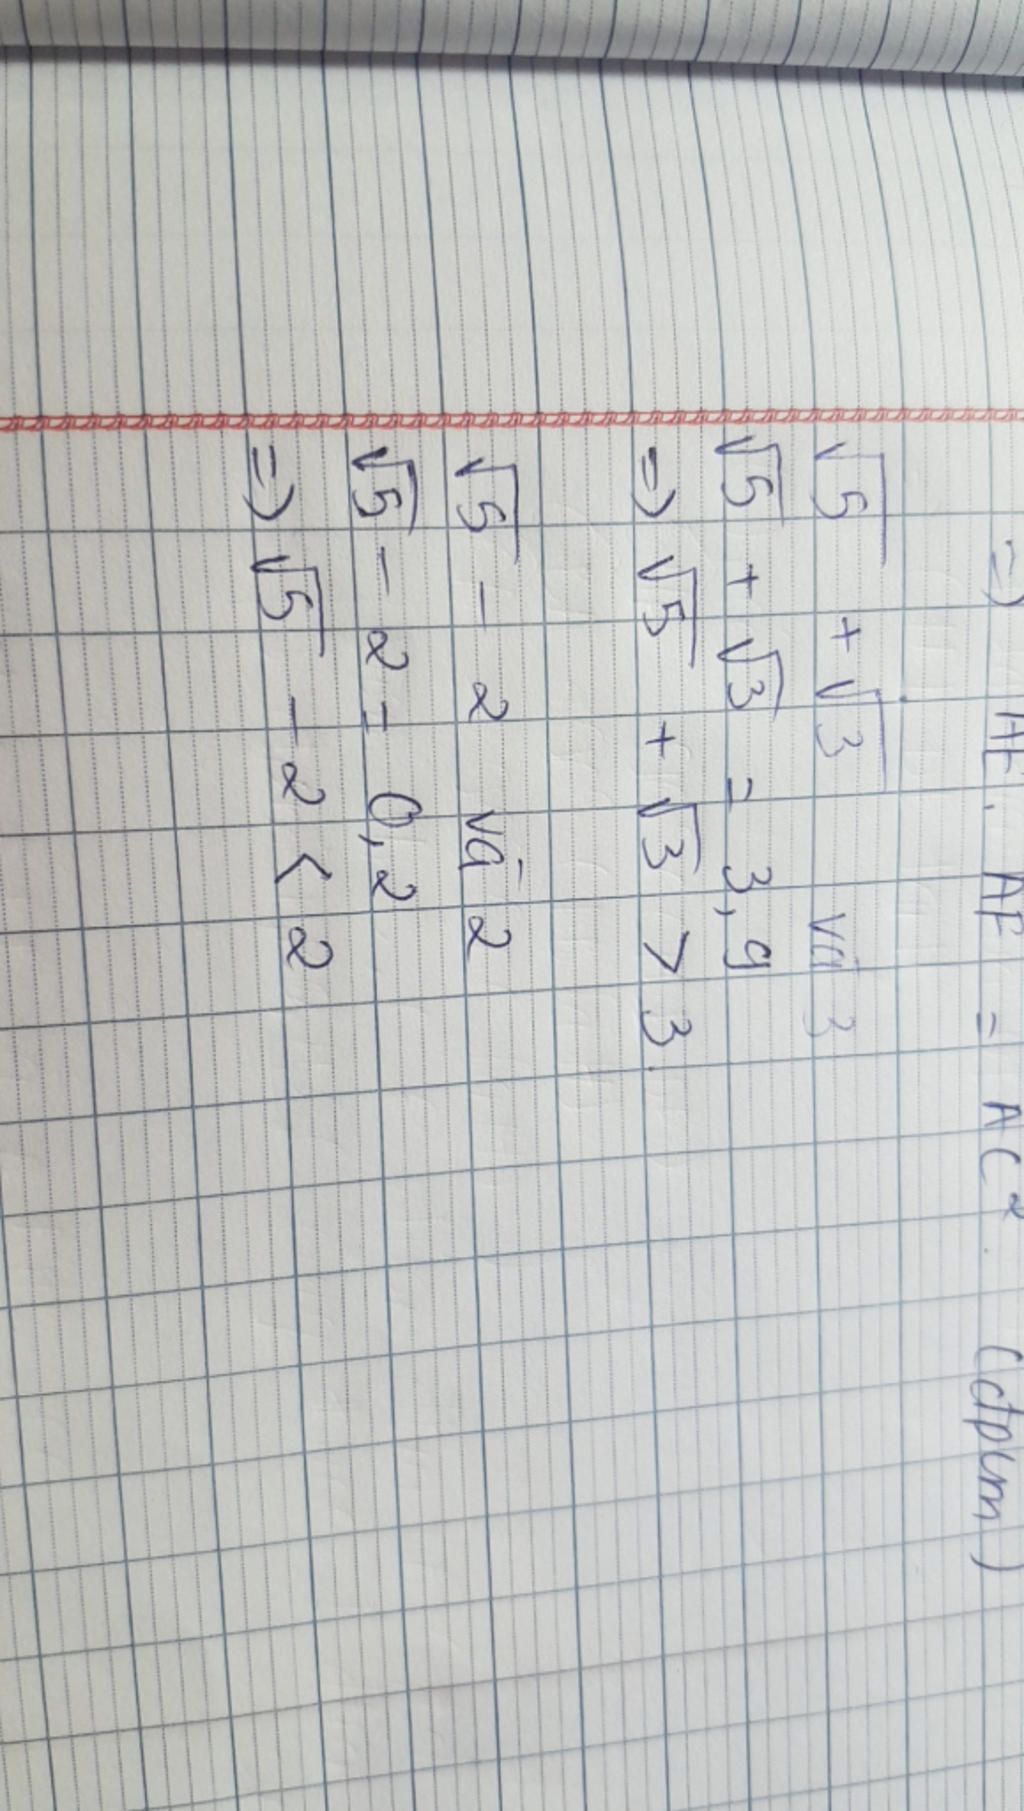 =) AE. AF = AC² (đpcm)
√5 + √3 và 3
√5 + √3 = 3,9
=) √5 + √3 > 3
√5 - 2 và 2
√5 - 2 = 0,2
=) √5 - 2 < 2